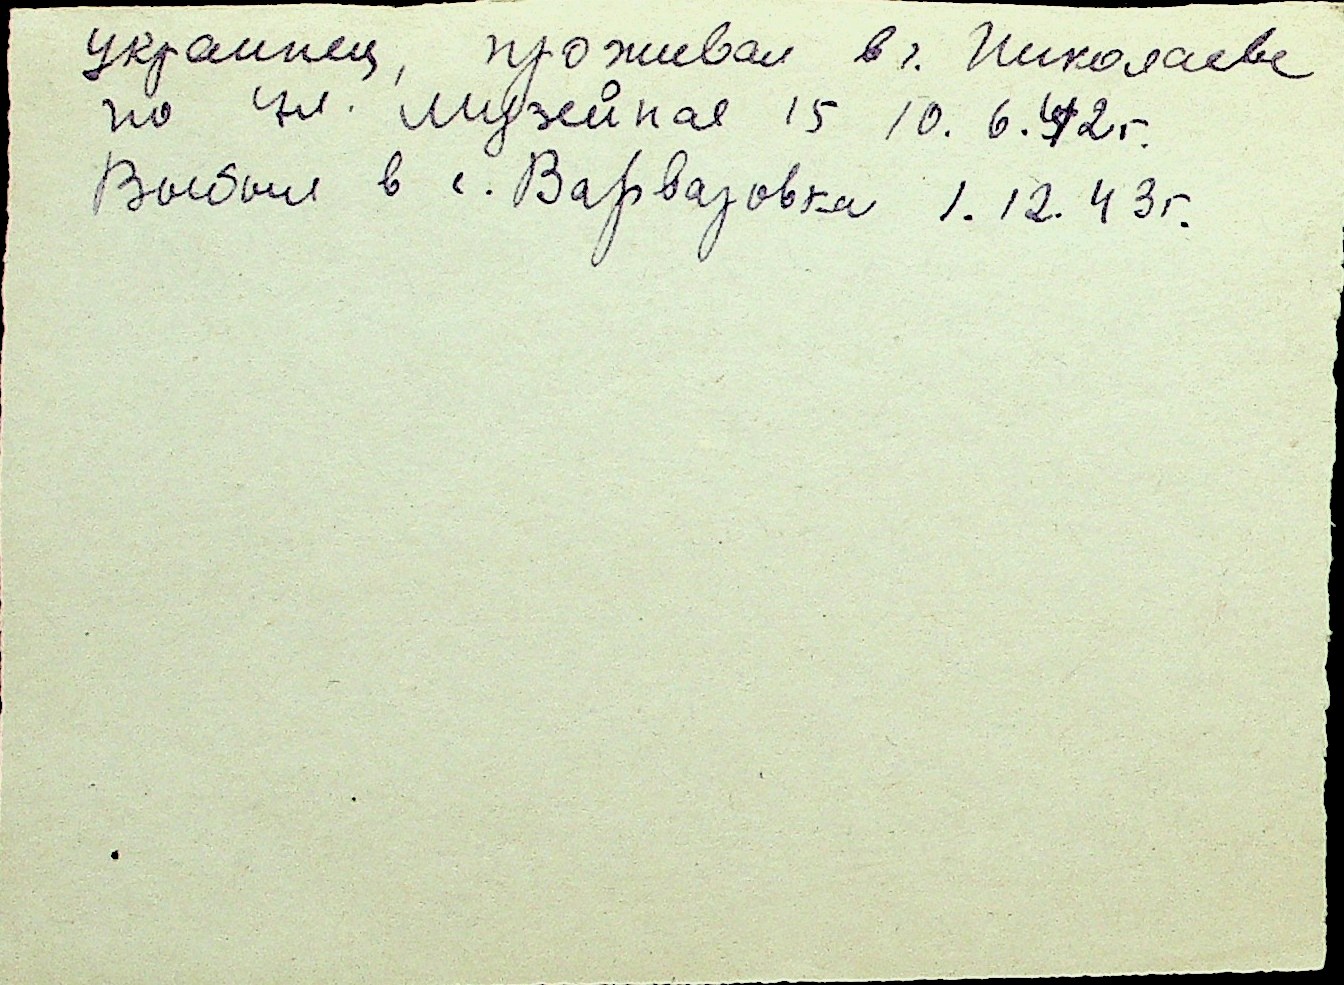 украинец, проживал в г. Николаеве
по ул. Музейная 15 10. 6. 42г.
Выбыл в с. Варваровка 1. 12. 43г.